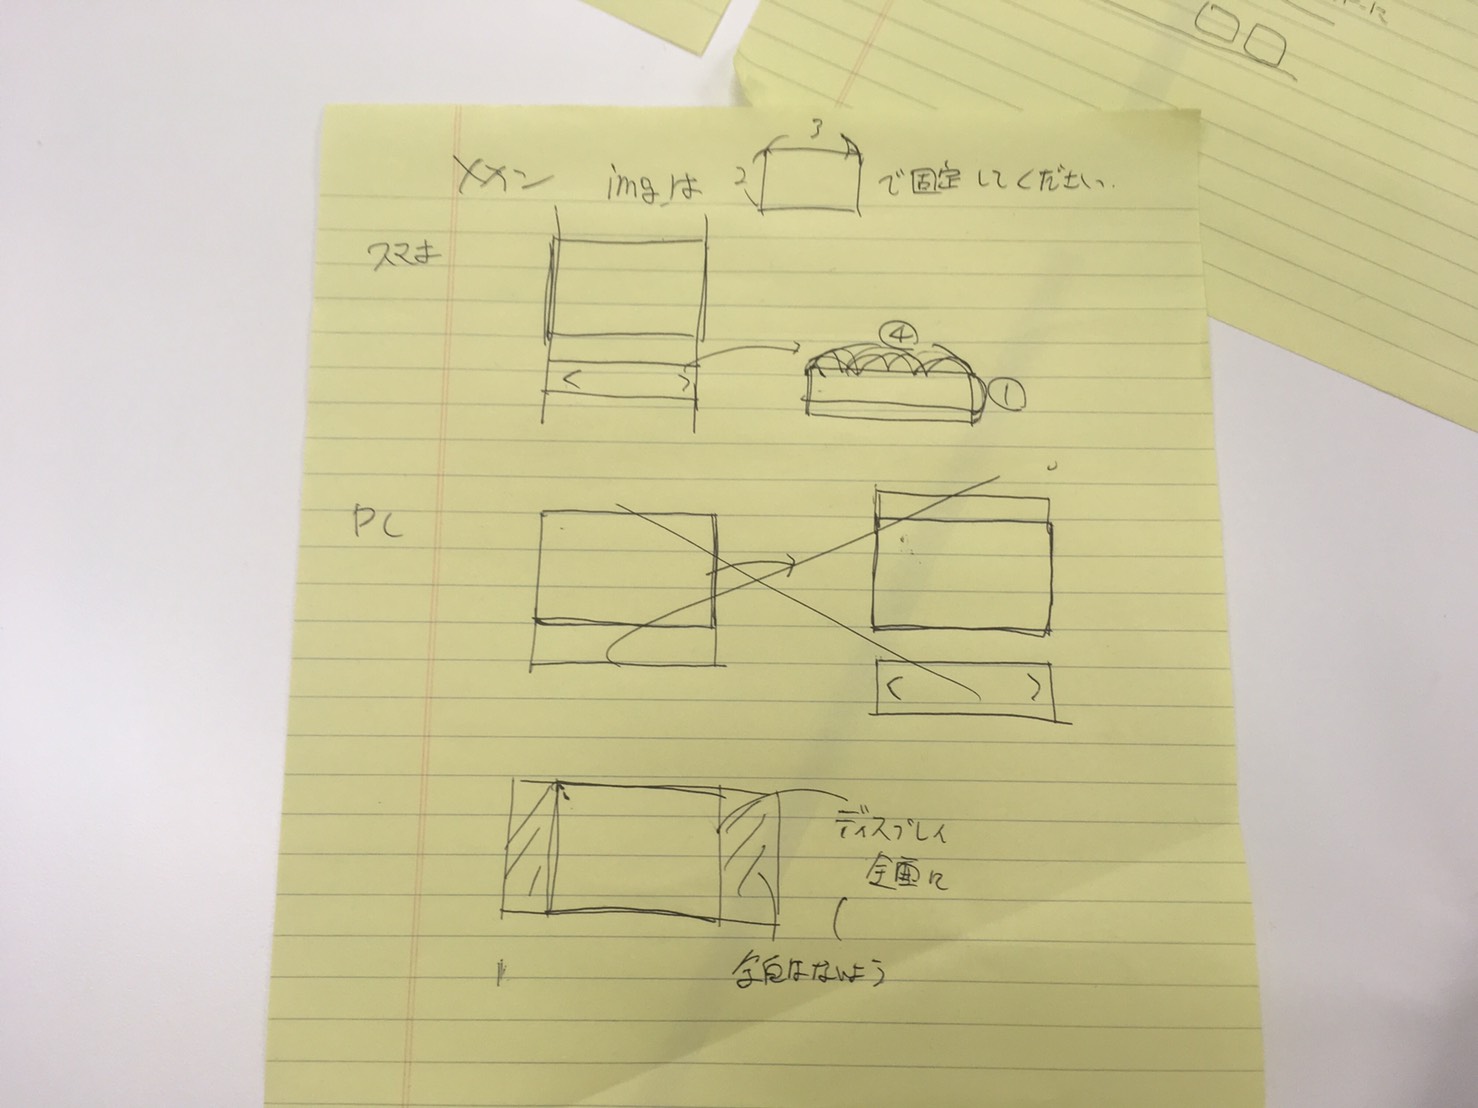 メイン imgは 3 2 で固定してください.
スマホ
< >
④
①
PC
< >
ディスプレイ
全画に
余白はないよう